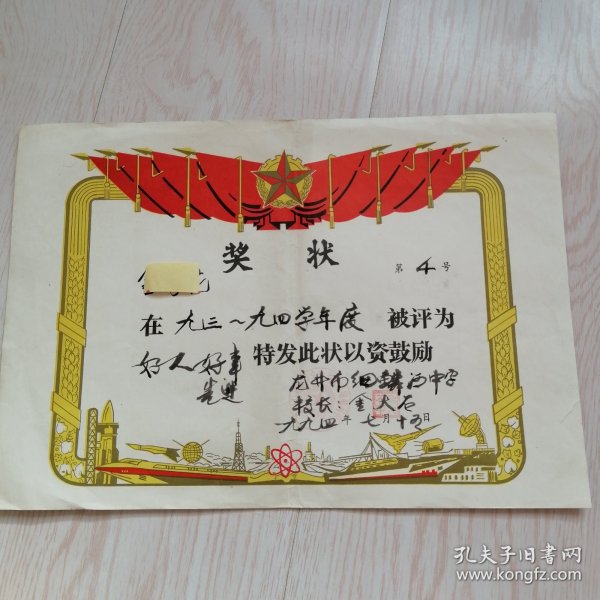 奖状
第 4 号
在 九三~九四学年度 被评为
好人好事 特发此状以资鼓励
先进
龙井市细鳞河中学
校长 金大石
九九四年 七月十五日
孔夫子旧书网
www.kongfz.com